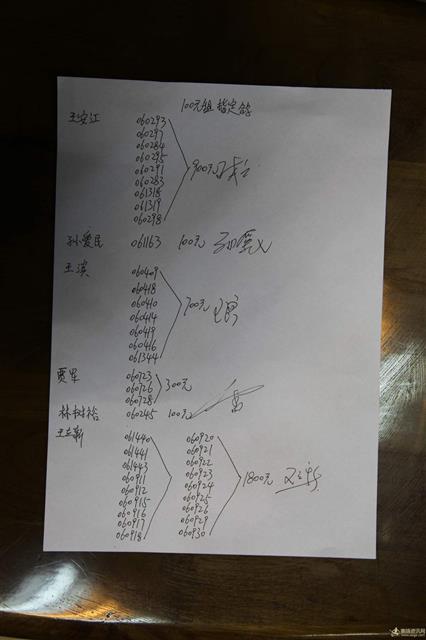 100元组指定鸽
王安江
060293
060297
060284
060295
060291
060283
061318
061319
060298
900元
孙爱民 061163 100元 孙爱民
王滨
060409
060418
060410
060414
060419
060416
061344
700元 王滨
贾军
060723
060726
060728
300元
林树裕 060245 100元
王立新
061440 060920
061441 060921
061443 060922
060911 060923
060912 060924
060915 060925
060916 060926
060917 060929
060918 060930
1800元 王立新